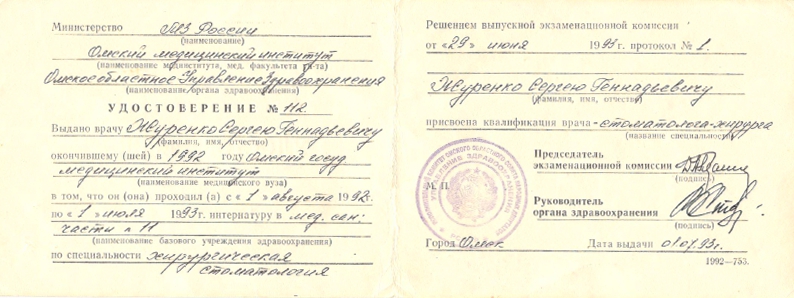 Министерство ГМЗ России
(наименование)
Омский медицинский институт
(наименование мединститута, мед. факультета ун-та)
Омское областное Управление Здравоохранения
(наименование органа здравоохранения)
УДОСТОВЕРЕНИЕ № 112
Выдано врачу Журенко Сергею Геннадьевичу
(фамилия, имя, отчество)
окончившему (шей) в 1992 году Омский госуд
медицинский институт
(наименование медицинского вуза)
в том, что он (она) проходил (а) с «1» августа 1992г.
по «1» июля 1993г. интернатуру в мед. сан.
части н 11
(наименование базового учреждения здравоохранения)
по специальности хирургическая
стоматология
Решением выпускной экзаменационной комиссии
от «29» июня 1993г. протокол № 1.
Журенко Сергею Геннадьевичу
(фамилия, имя, отчество)
присвоена квалификация врача-стоматолога-хирурга
(название специальности)
Председатель
экзаменационной комиссии
(подпись)
М. П.
Руководитель
органа здравоохранения
(подпись)
Город Омск Дата выдачи 01.07.93г.
1992—753.